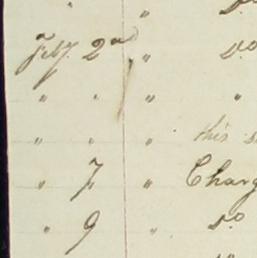 " Do
Feby. 2nd " Do
" " " "
" " " this
" 7 " Charg
" 9 " Do